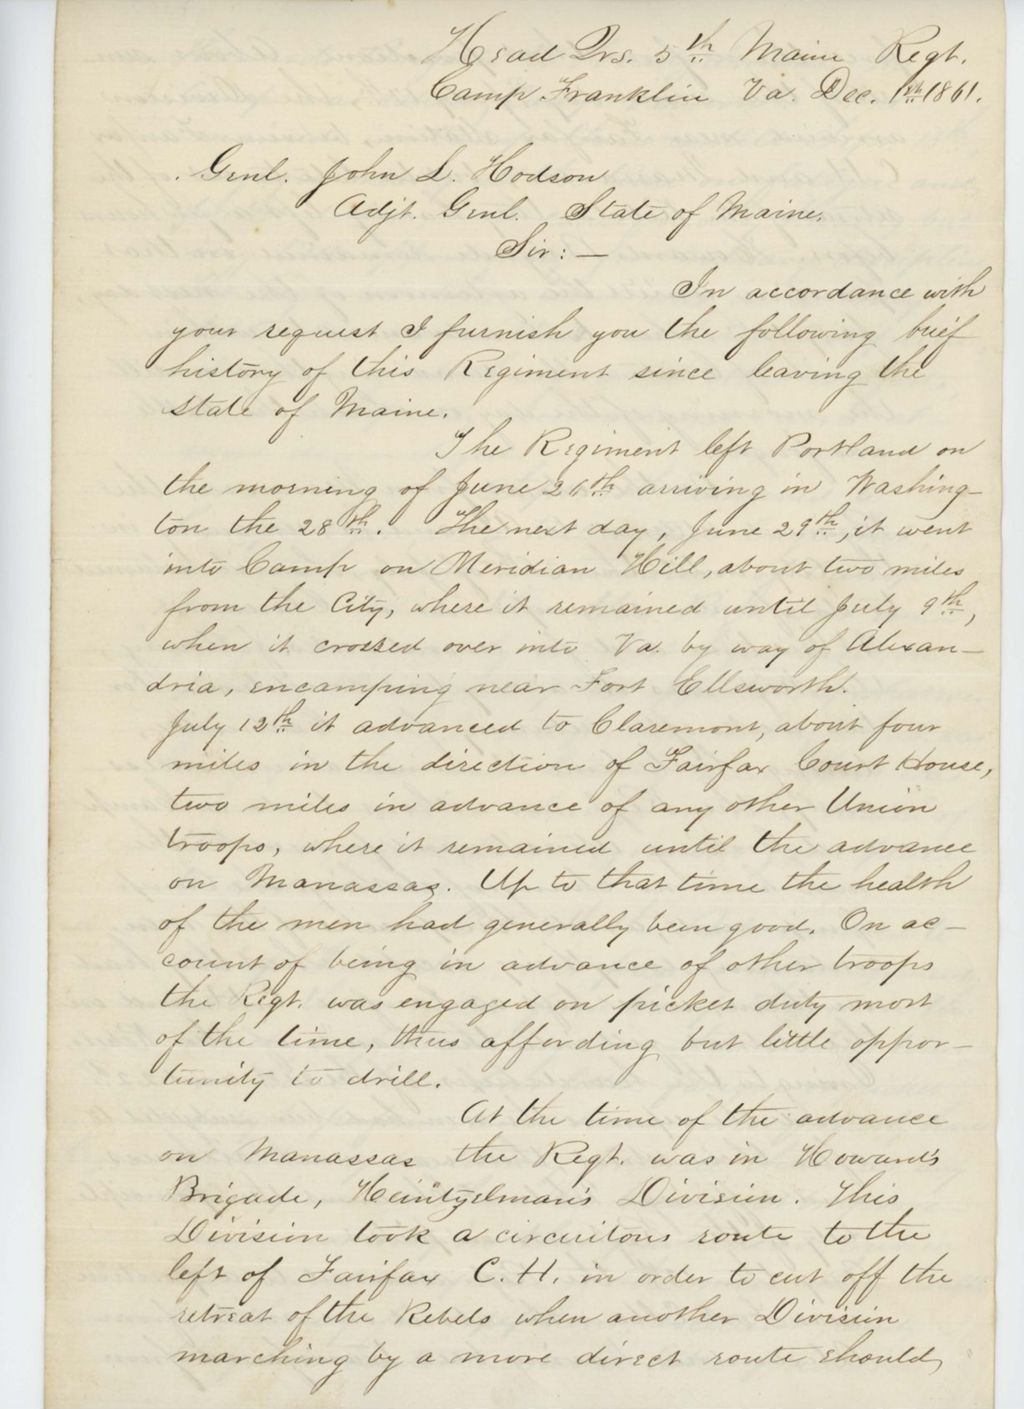 Head Qrs. 5th Maine Regt.
Camp Franklin Va. Dec. 1st 1861.
Genl. John L. Hodson
Adjt. Genl. State of Maine.
Sir: —
In accordance with
your request I furnish you the following brief
history of this Regiment since leaving the
state of Maine.
The Regiment left Portland on
the morning of June 26th arriving in Washing-
ton the 28th. The next day, June 29th, it went
into Camp on Meridian Hill, about two miles
from the City, where it remained until July 9th,
when it crossed over into Va. by way of Alexan-
dria, encamping near Fort Ellsworth.
July 12th it advanced to Claremont, about four
miles in the direction of Fairfax Court House,
two miles in advance of any other Union
troops, where it remained until the advance
on Manassas. Up to that time the health
of the men had generally been good. On ac-
count of being in advance of other troops
the Regt. was engaged on picket duty most
of the time, thus affording but little oppor-
tunity to drill.
At the time of the advance
on Manassas the Regt. was in Howard's
Brigade, Heintzelman's Division. This
Division took a circuitous route to the
left of Fairfax C. H. in order to cut off the
retreat of the Rebels when another Division
marching by a more direct route should